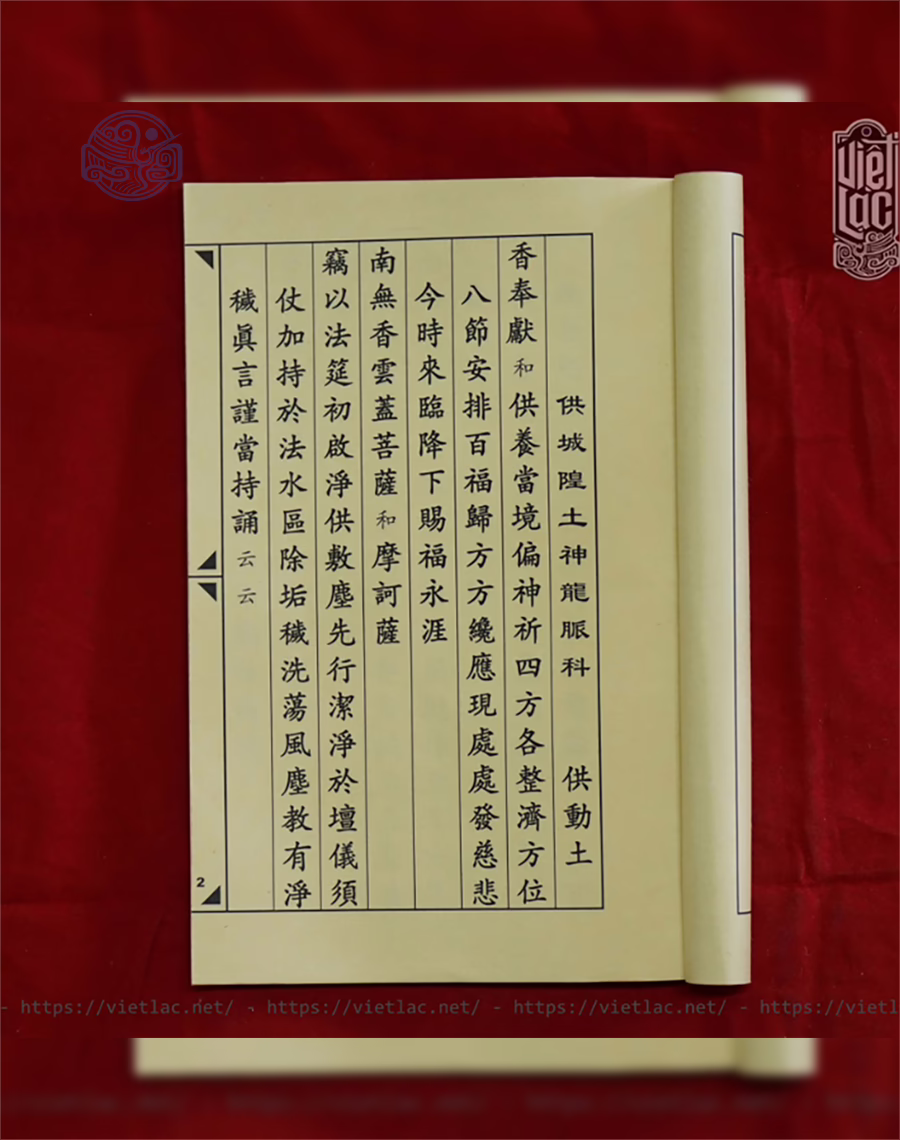 供城隍土神龍脈科 供動土
香奉獻和供養當境偏神祈四方各整濟方位
八節安排百福歸方方纔應現處處發慈悲
今時來臨降下賜福永涯
南無香雲蓋菩薩和摩訶薩
竊以法筵初啟淨供敷塵先行潔淨於壇儀須
仗加持於法水區除垢穢洗蕩風塵教有淨
穢眞言謹當持誦云云
2
Việt Lạc
- https://vietlac.net/ - https://vietlac.net/ - https://vietlac.net/ - https://vietl